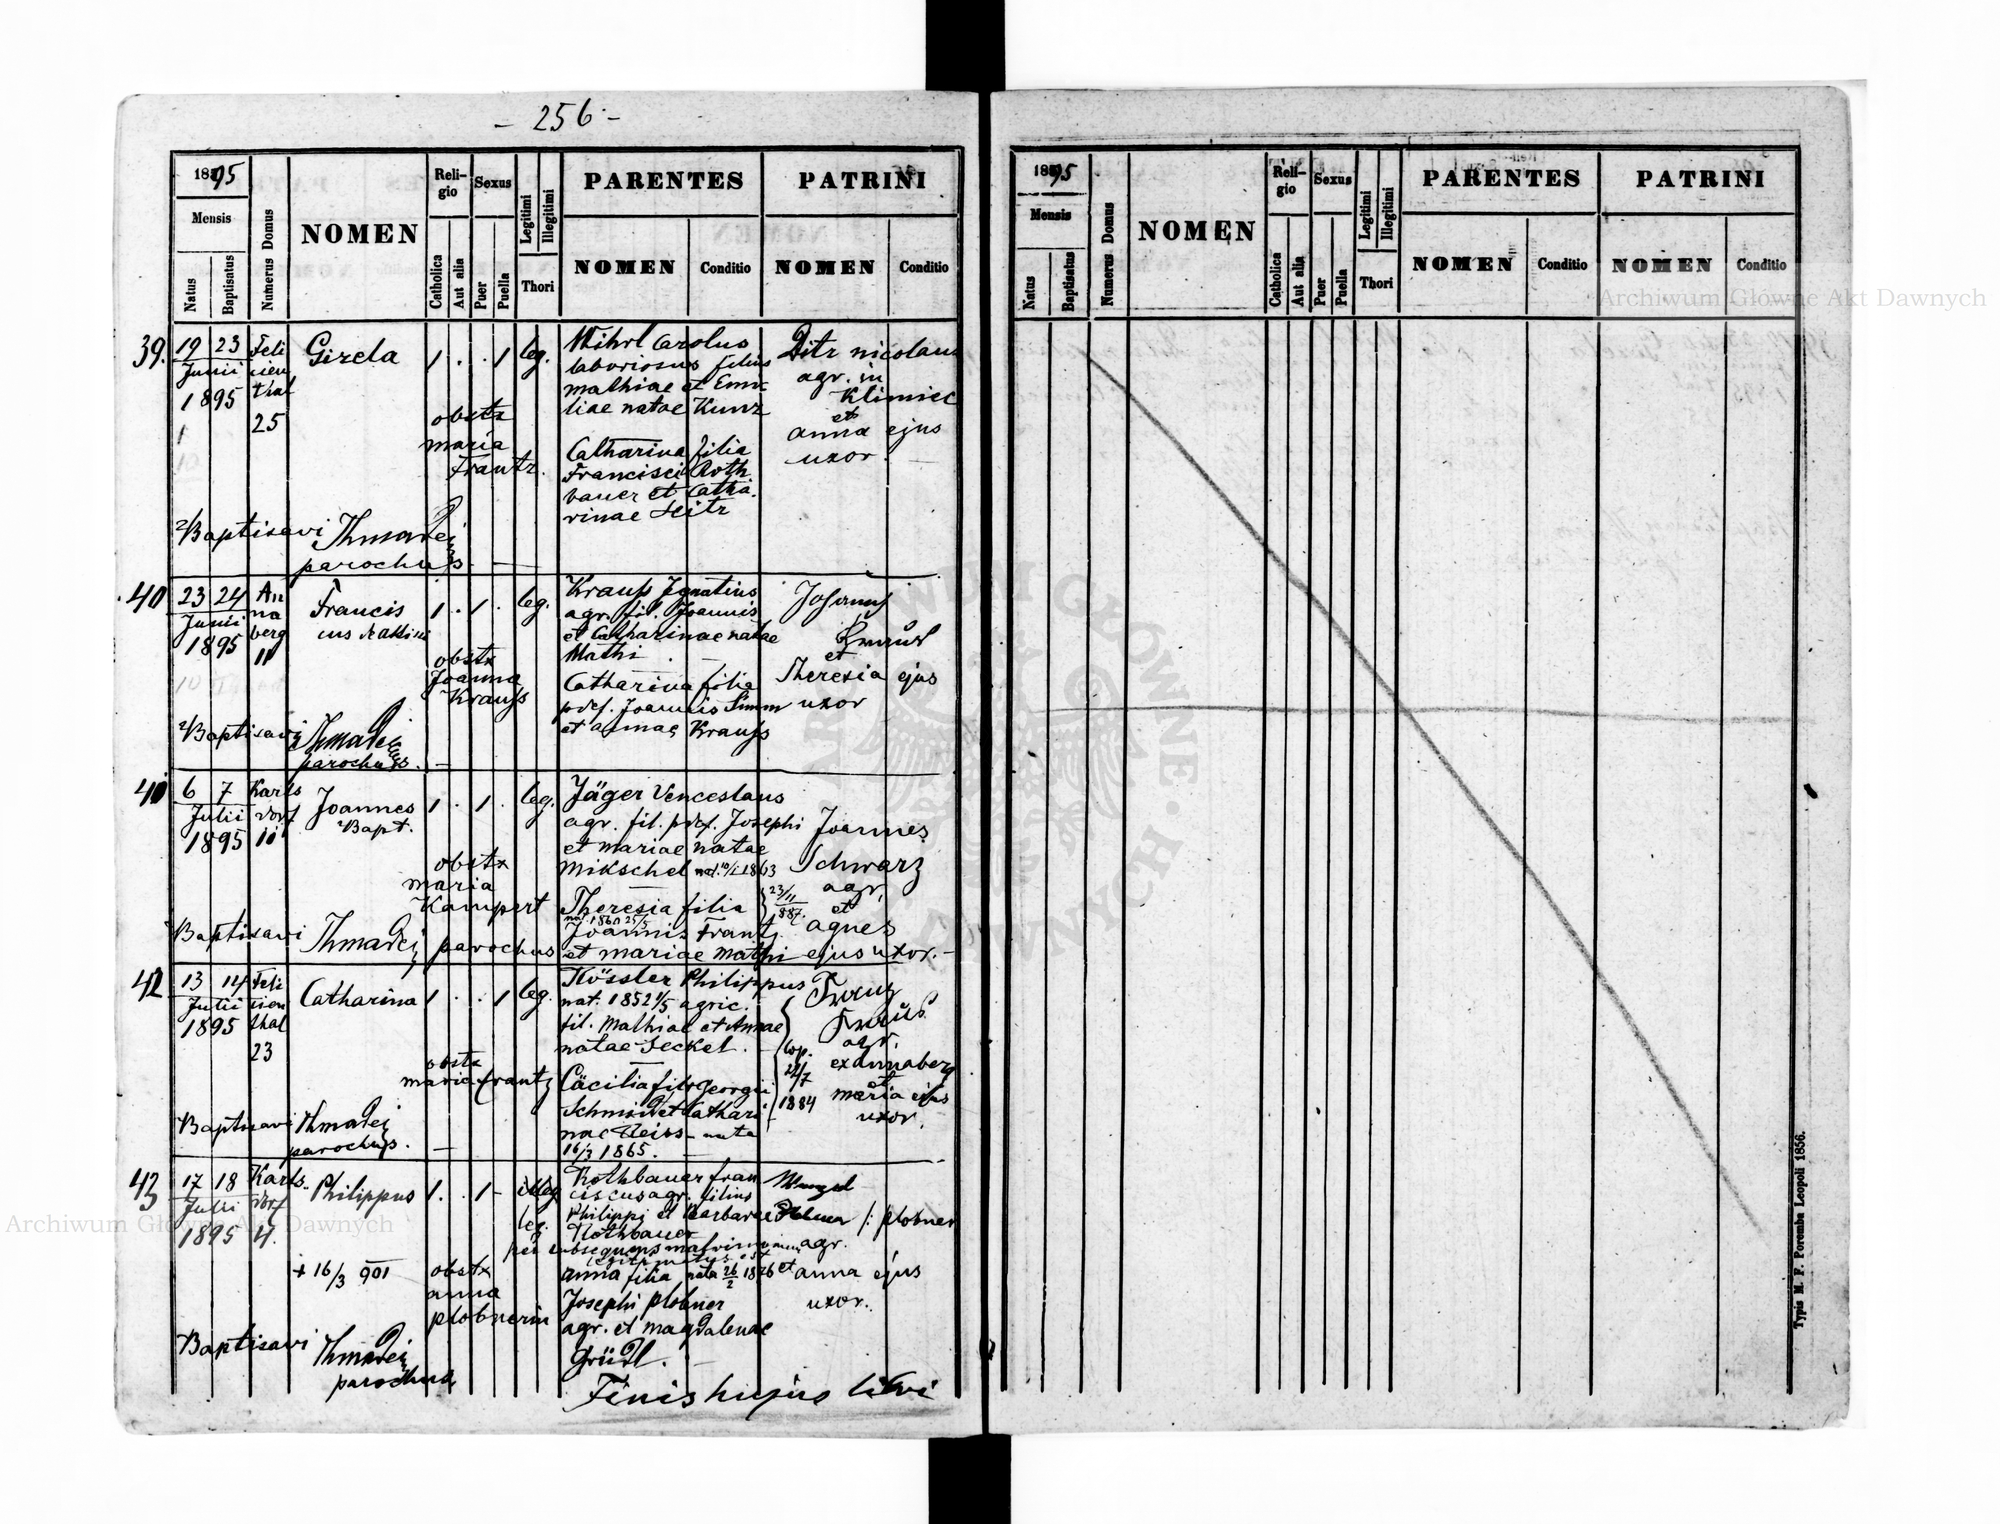 - 256 -
1895
Mensis
Natus
Baptisatus
Numerus Domus
NOMEN
Religio
Catholica
Aut alia
Sexus
Puer
Puella
Legitimi
Illegitimi
Thori
PARENTES
NOMEN
Conditio
PATRINI
NOMEN
Conditio
39.
19 23
Junii
1895
Feli
cien
thal
25
Gizela
1 . . 1 leg.
obstx
maria
Frantz.
Carolus
laboriosus filius
mathiae et Emi-
liae natae Kunz
Catharina filia
Francisci Roth
bauer et Catha
rinae Seitz
nicolaus
agr. in
Klimiec
et
anna ejus
uxor.
Baptisavi
parochus
40
23 24
Junii
1895
An
na
berg
11
Francis
cus
1 . 1 . leg.
obstx
Joanna
Krauss
Krauss Ignatius
agr. fil. Joannis
et Catharinae natae
Mathi
Catharina filia
pdef. Joannis Simm
et annae Krauss
et
Theresia ejus
uxor
Baptisavi
parochus.
41
6 7
Julii
1895
Karls
dorf
10
Joannes
Bapt.
1 . 1 . leg.
obstx
maria
Kampert
Jäger Venceslaus
agr. fil. pdef. Josephi
et mariae natae
Mikschel nat. 10/1 1863
Theresia filia
nat. 1860 25/5
Joannis Frantz
et mariae Mathi
23/11
887.
Joannes
Schwarz
agr.
et
agnes
ejus uxor.-
Baptisavi
parochus
42
13 14
Julii
1895
Feli
cien
thal
23
Catharina
1 . . 1 leg.
obstx
maria Frantz
Kössler Philippus
nat. 1852 1/5 agric.
fil. Mathiae et Annae
natae Seckel.
Cäcilia fil. Georgii
Schmid et Cathari
nae Weiss - nata
16/3 1865.
Cop.
22/7
1884
Franz
Kraus
agr.
ex annaberg
et
maria ejus
uxor.
Baptisavi
parochus.
43
17 18
Julii
1895
Karls-
dorf
4.
Philippus
1 . . 1 - illeg
leg.
+ 16/3 901
obstx
anna
plobnerin
Rothbauer fran
ciscus agr. filius
Philippi et Barbarae
Rothbauer
per subsequens matrimonium
legitimatus est
anna filia nata 26/2 1826
Josephi plobner
agr. et magdalenae
Grüdl.
Wenzel
/: plobner
agr.
et anna ejus
uxor.
Baptisavi
parochus
Finis hujus libri
1895
Mensis
Natus
Baptisatus
Numerus Domus
NOMEN
Religio
Catholica
Aut alia
Sexus
Puer
Puella
Legitimi
Illegitimi
Thori
PARENTES
NOMEN
Conditio
PATRINI
NOMEN
Conditio
Typis M. F. Poremba Leopoli 1856.
Archiwum Główne Akt Dawnych
Archiwum Główne Akt Dawnych
ARCHIWUM GŁÓWNE AKT DAWNYCH